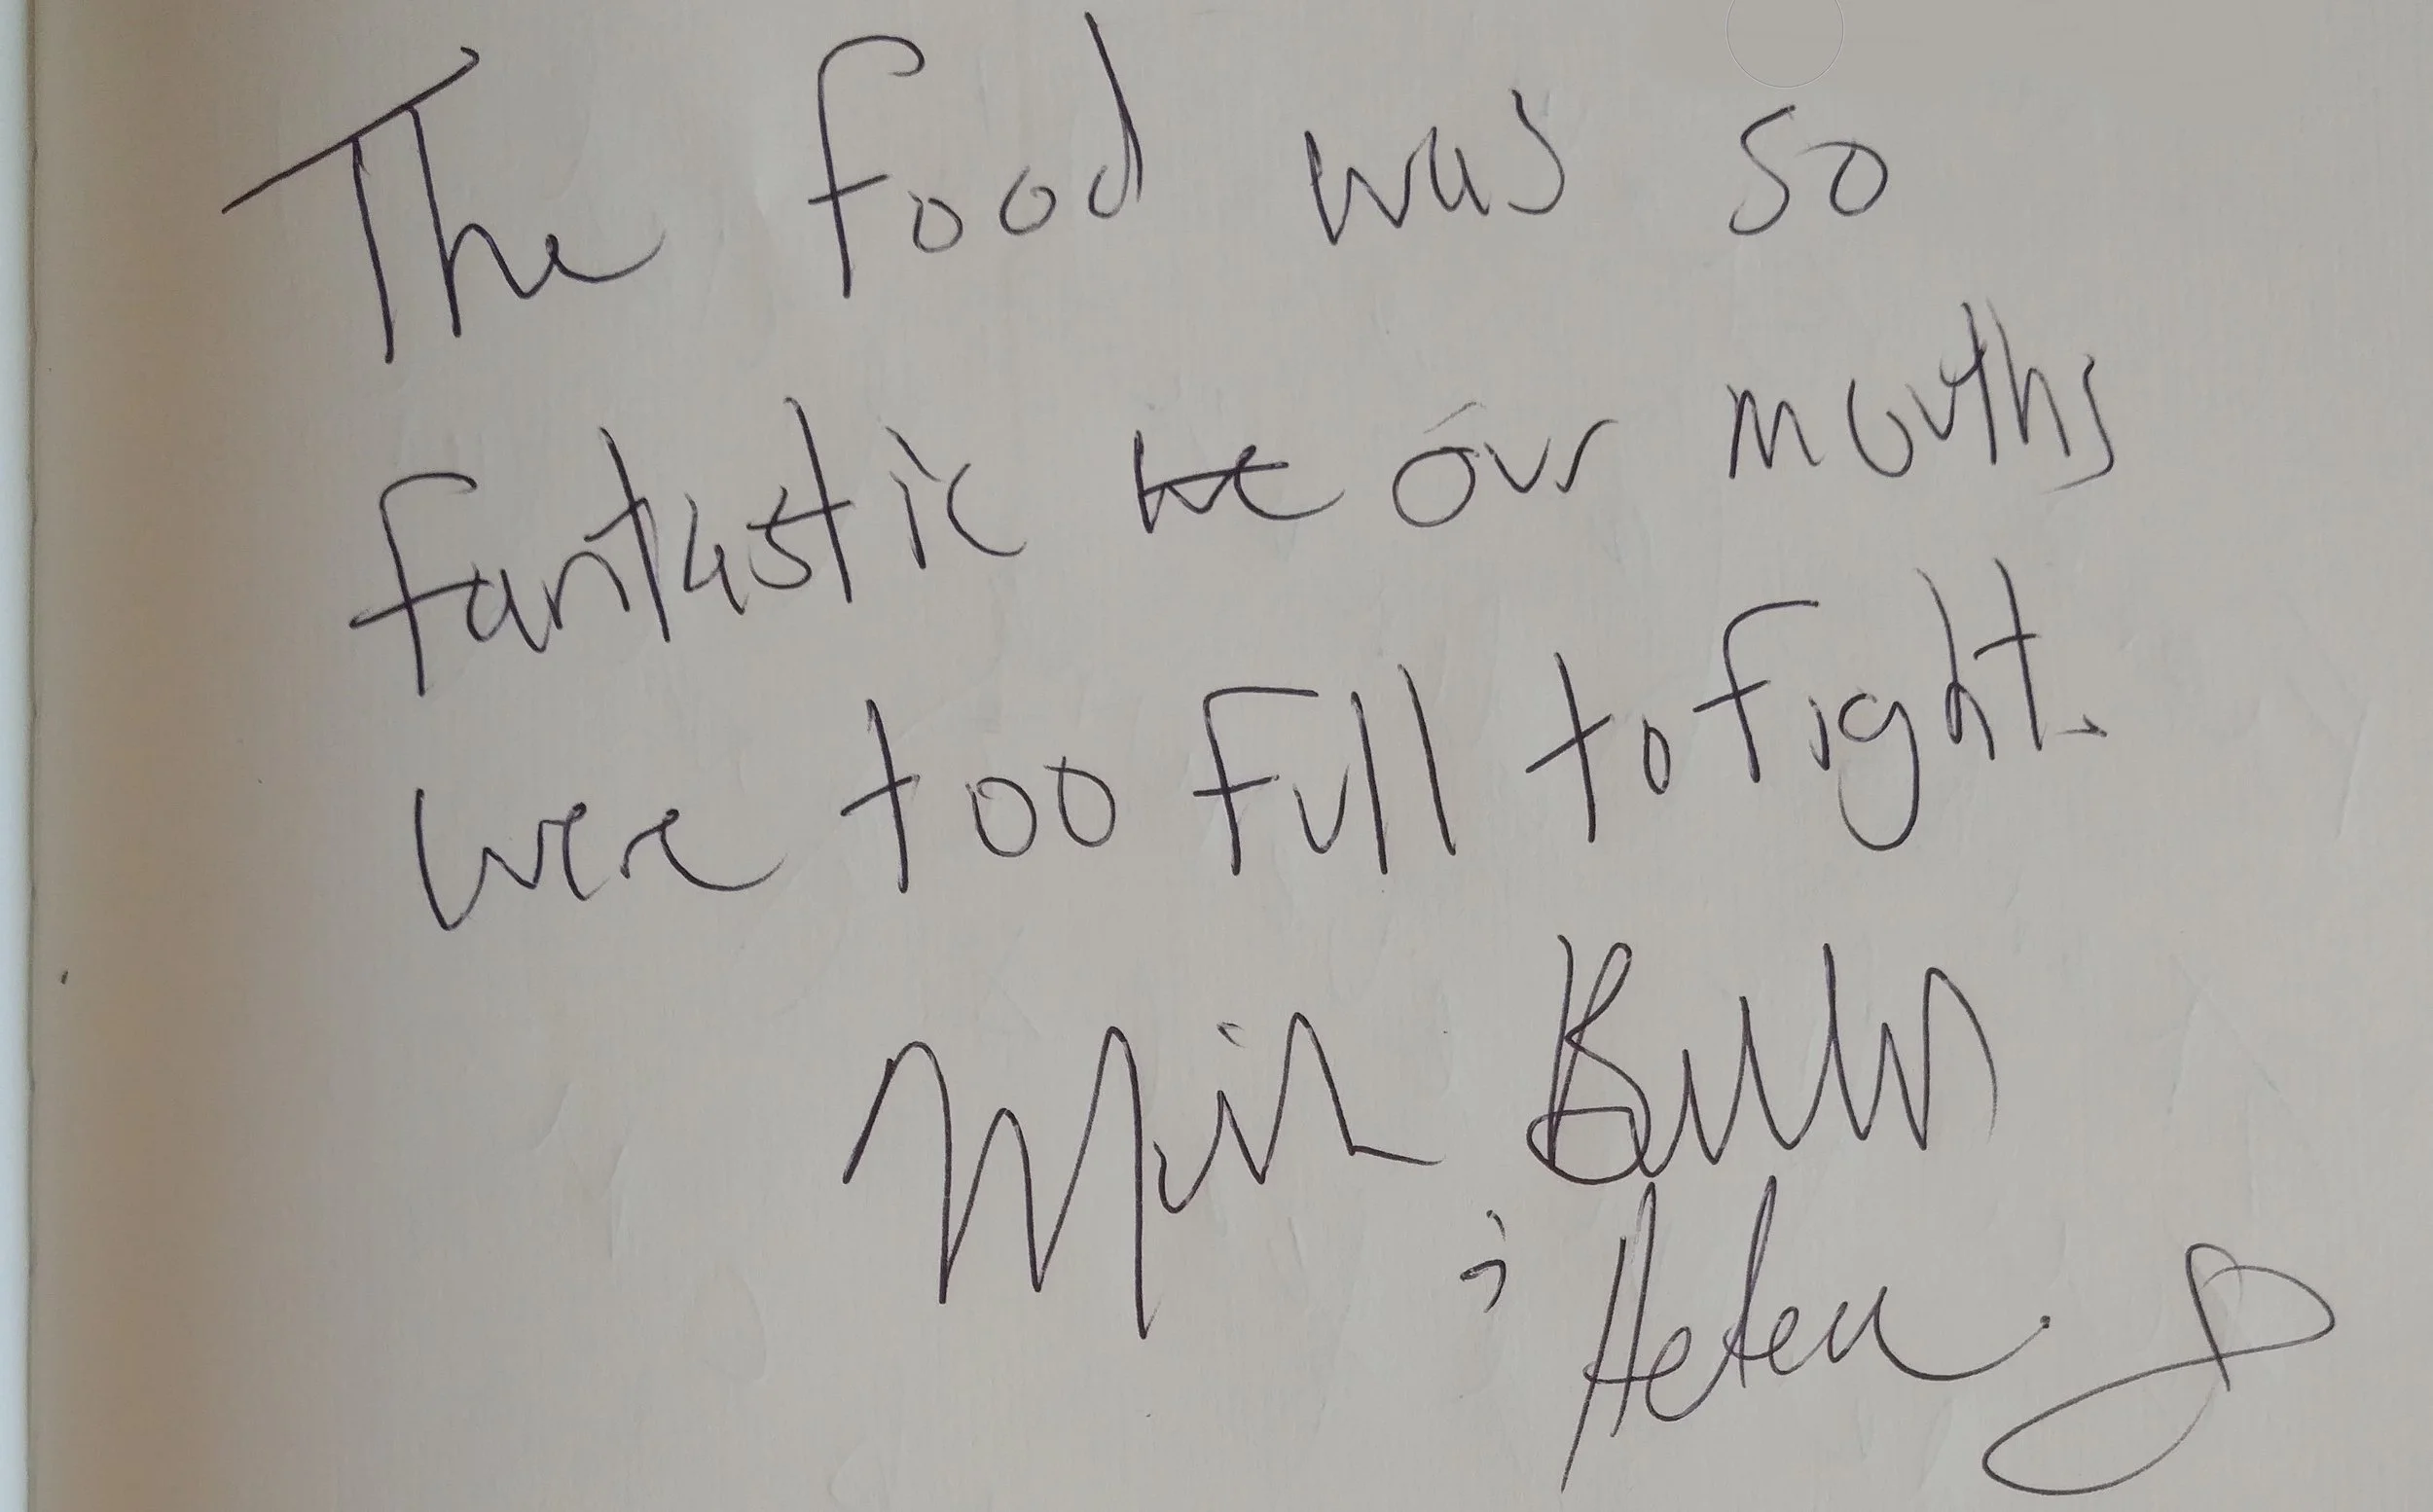 The food was so
fantastic ~~we~~ our mouths
were too full to fight.
Helen